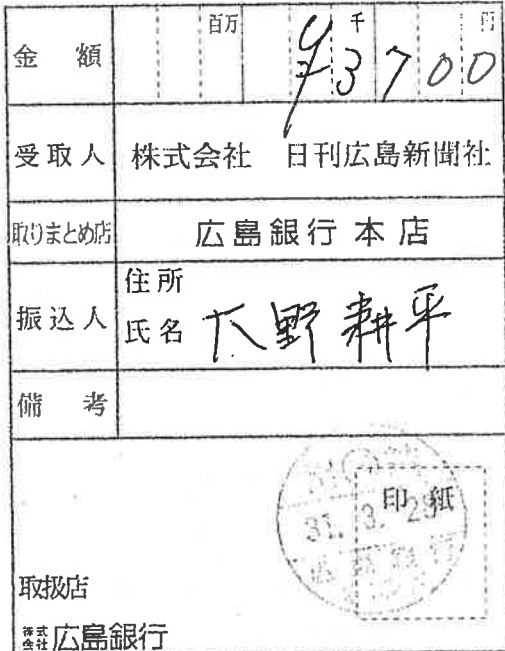 金額 百万 千 円 ¥3700
受取人 株式会社 日刊広島新聞社
取りまとめ店 広島銀行本店
振込人 住所
氏名 大野耕平
備考
印紙
31. 3. 29
取扱店
株式会社広島銀行